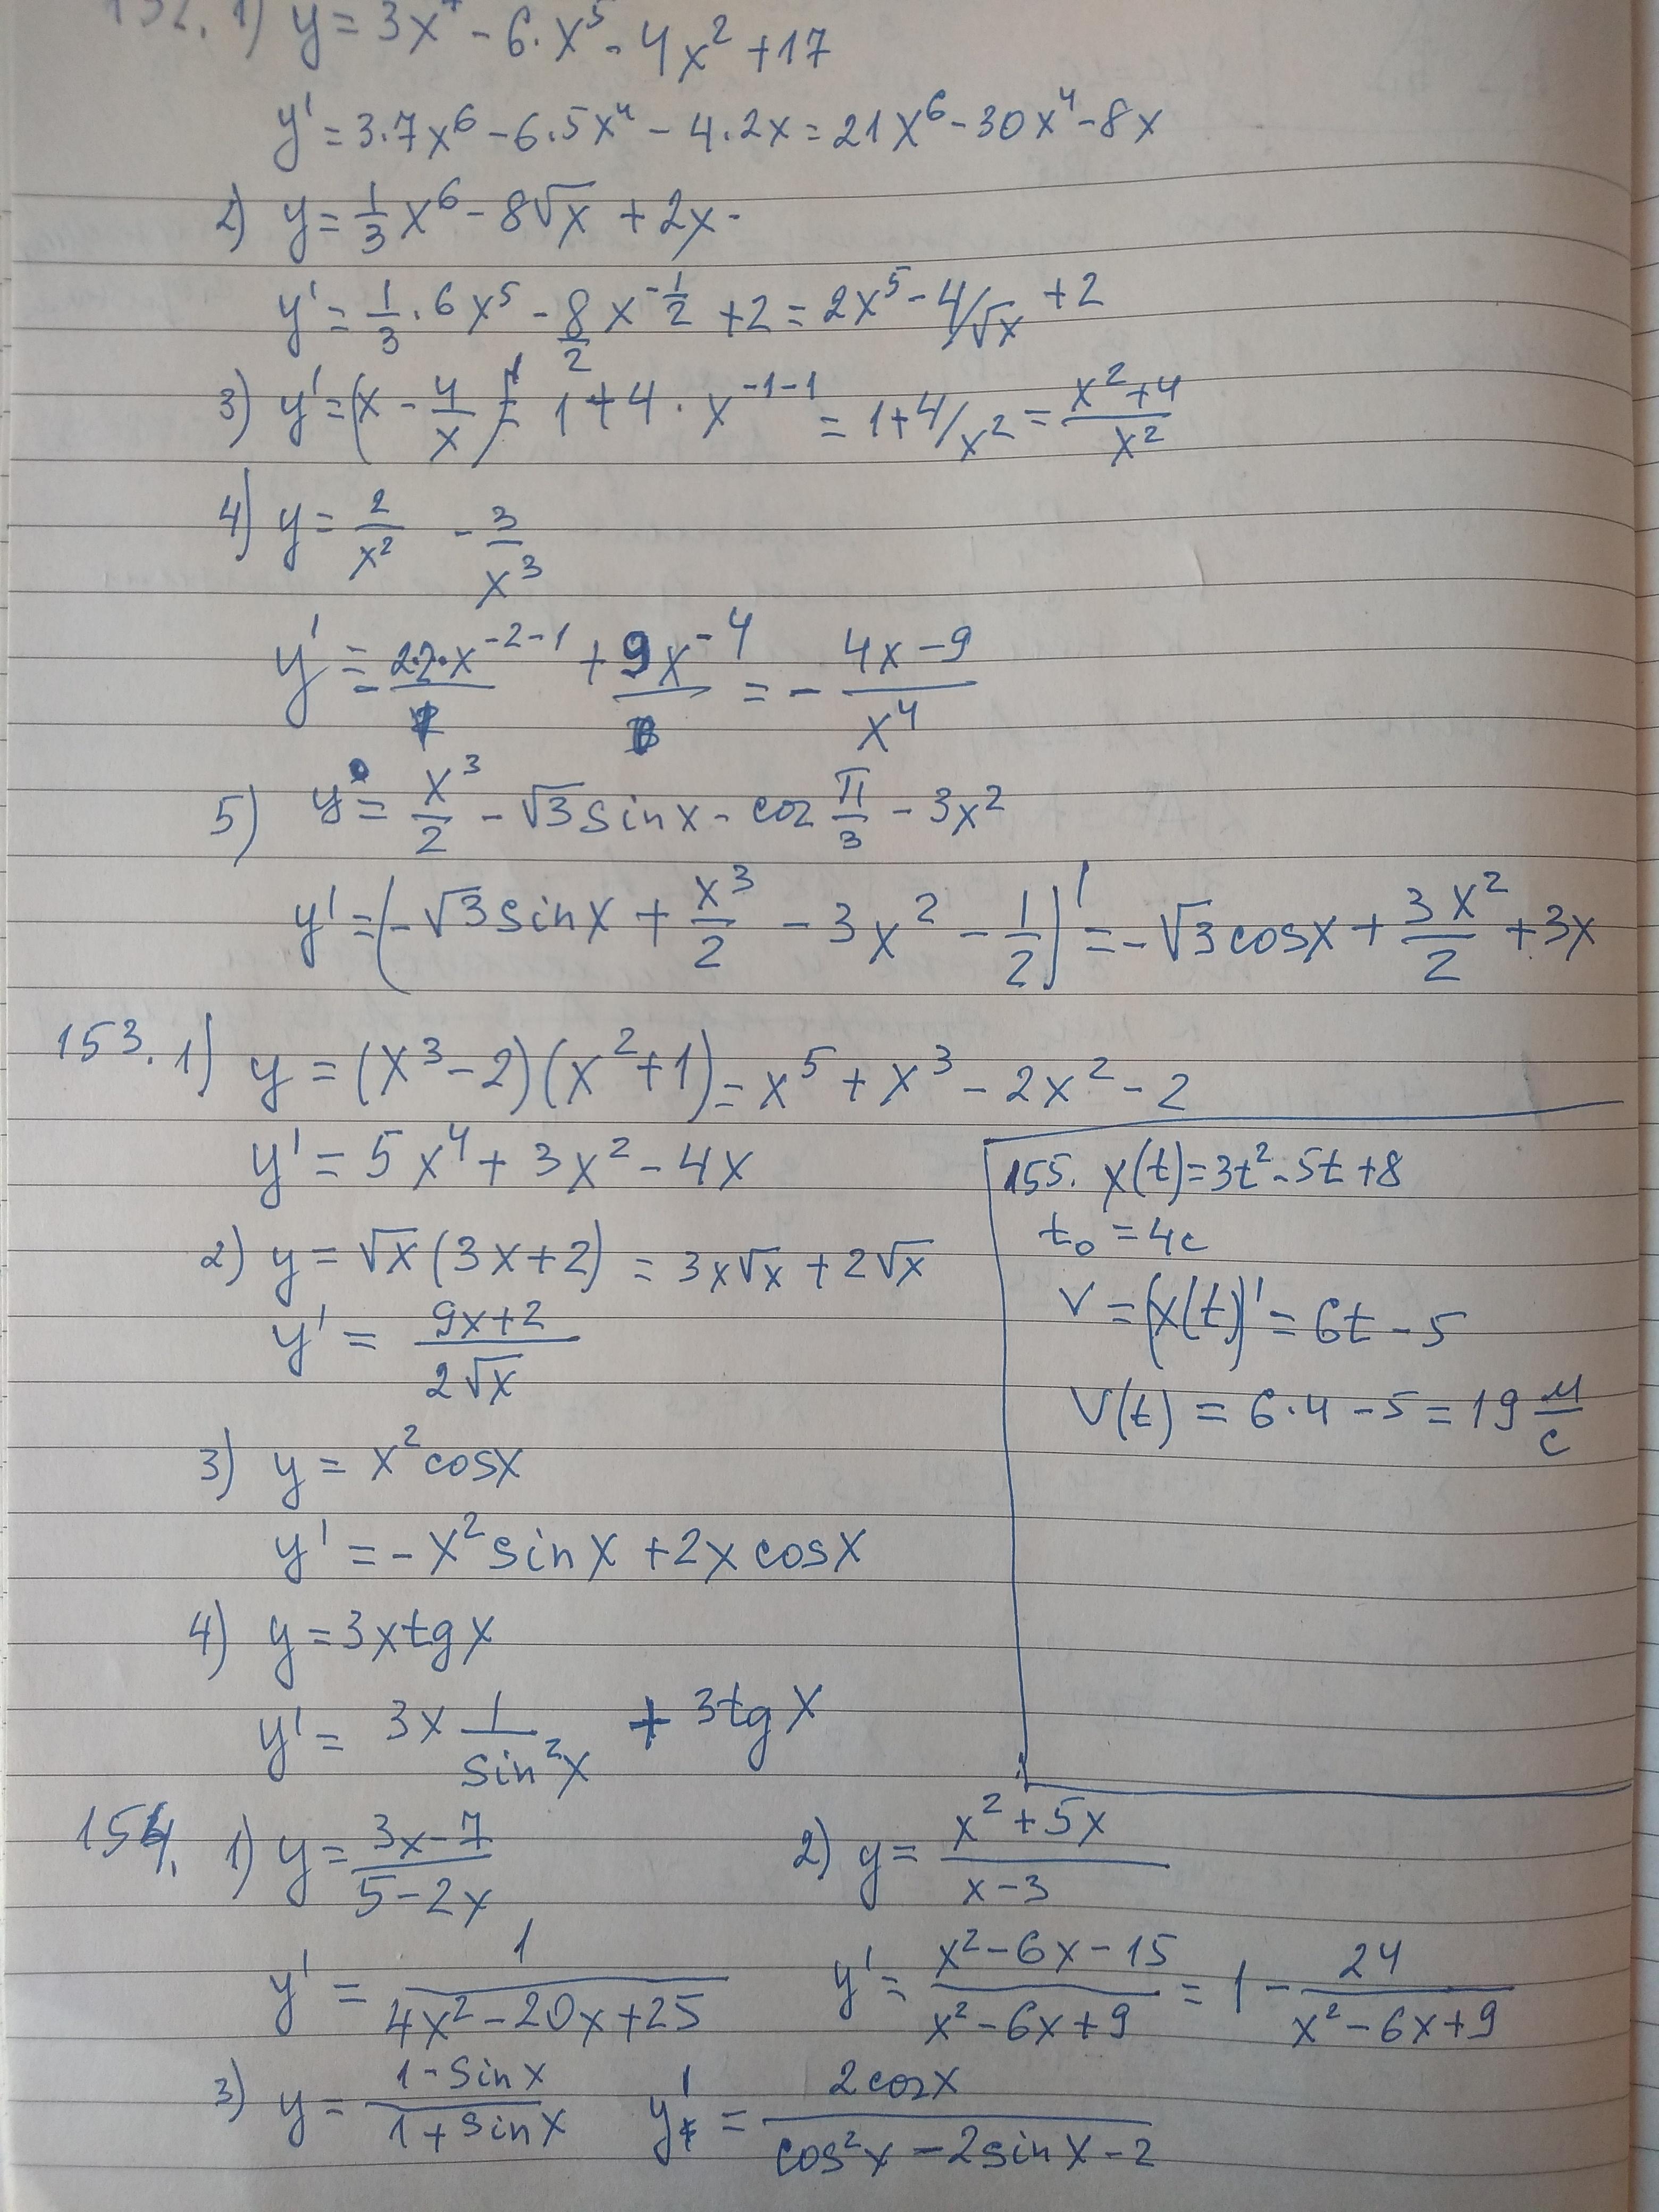 152. 1) y = 3x⁷ - 6·x⁵ - 4x² + 17
y' = 3·7x⁶ - 6·5x⁴ - 4·2x = 21x⁶ - 30x⁴ - 8x
2) y = 1/3 x⁶ - 8√x + 2x
y' = 1/3 · 6x⁵ - 8/2 x^(-1/2) + 2 = 2x⁵ - 4/√x + 2
3) y' = (x - 4/x)' = 1 + 4 · x^(-1-1) = 1 + 4/x² = (x²+4)/x²
4) y = 2/x² - 3/x³
y' = - 2·2·x^(-2-1) + 9x^(-4) = - (4x-9)/x⁴
5) y = x³/2 - √3 sinx - cos π/3 - 3x²
y' = (-√3 sinx + x³/2 - 3x² - 1/2)' = -√3 cosx + 3x²/2 + 3x
153. 1) y = (x³-2)(x²+1) = x⁵ + x³ - 2x² - 2
y' = 5x⁴ + 3x² - 4x
2) y = √x (3x+2) = 3x√x + 2√x
y' = (9x+2)/(2√x)
3) y = x² cosx
y' = -x² sinx + 2x cosx
4) y = 3x tg x
y' = 3x 1/sin²x + 3tg x
155. x(t) = 3t² - 5t + 8
t₀ = 4с
V = (x(t))' = 6t - 5
V(t) = 6·4 - 5 = 19 м/с
154. 1) y = (3x-7)/(5-2x) 2) y = (x²+5x)/(x-3)
y' = 1/(4x²-20x+25) y' = (x²-6x-15)/(x²-6x+9) = 1 - 24/(x²-6x+9)
3) y = (1-sinx)/(1+sinx) y' = 2cosx/(cos²x - 2sinx - 2)